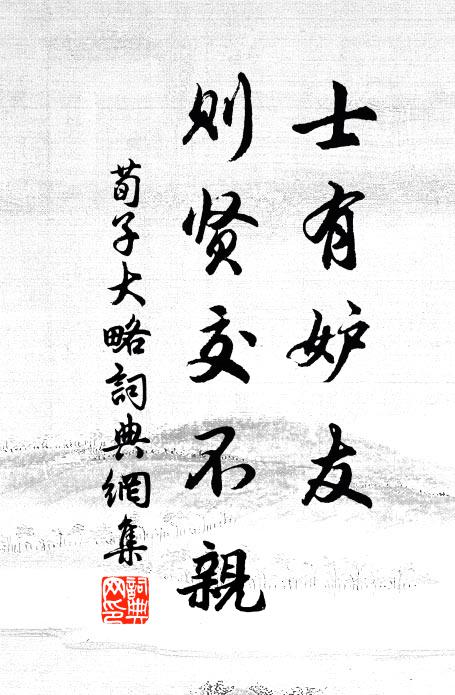 士有妒友
则贤交不親
荀子大略詞典網集
詞典網印